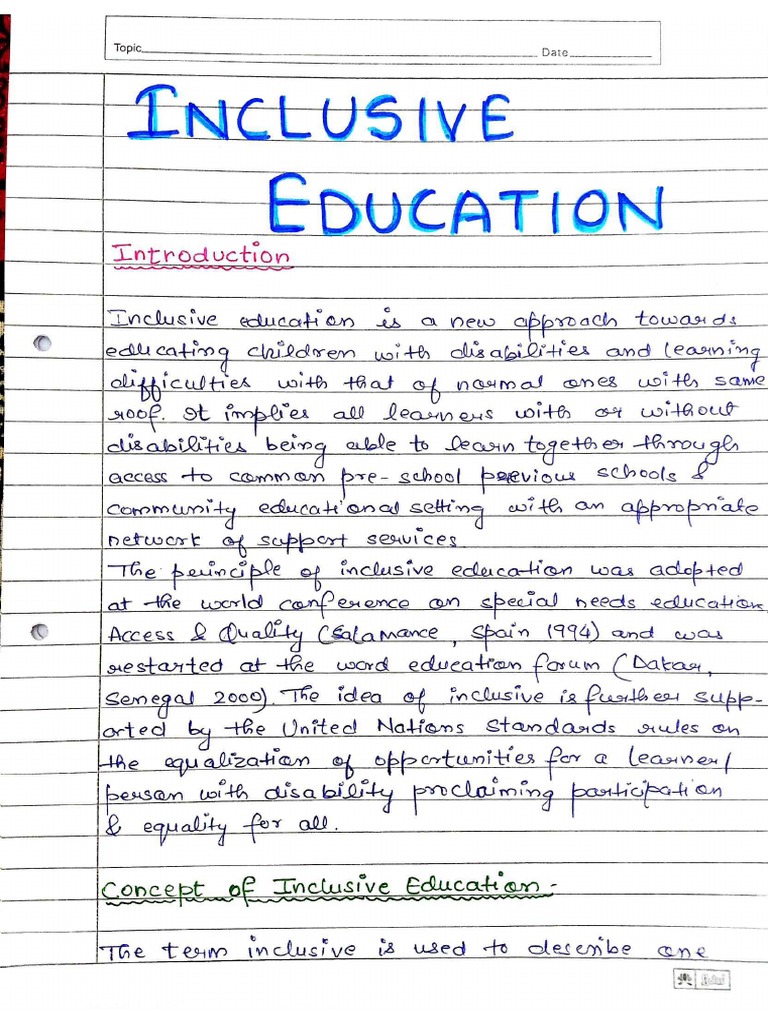 Topic Date
INCLUSIVE
EDUCATION
Introduction
Inclusive education is a new approach towards
educating children with disabilities and learning
difficulties with that of normal ones with same
roof. It implies all learners with or without
disabilities being able to learn together through
access to common pre-school previous schools &
community educational setting with an appropriate
network of support services
The principle of inclusive education was adopted
at the world conference on special needs education,
Access & Quality (Salamance, Spain 1994) and was
restarted at the word education forum (Dakar,
Senegal 2000). The idea of inclusive is further supp-
orted by the United Nations Standards rules on
the equalization of opportunities for a learner/
person with disability proclaiming participation
& equality for all.
Concept of Inclusive Education -
The term inclusive is used to describe one